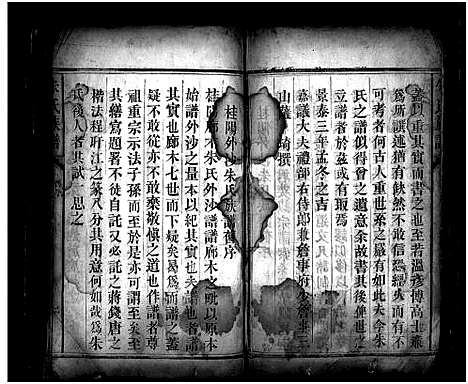 蓋以重其實而書之也至若溫彥博高北燕
為所誤連猶有歉然不敢信
可考者何古人重世系之嚴有如此夫令朱
氏之譜似得曾之遺意余故書其後俾世之
立譜者於茲或有取焉
景泰三年孟冬之吉
嘉議大夫禮部右侍郎兼詹事府
山薩琦撰
桂陽外沙朱氏族譜舊序
桂陽廊木朱氏外沙譜譜廊木之
始譜外沙之
其實也廊木七世而下疑
疑不敢從亦不敢棄敬慎之道也作譜者尊
祖重宗示法子孫而至於是亦可謂至矣至
其繕寫題署不徒自託又必託之蔣錢唐之
楷法程旴江之篆八分其用意何如哉為朱
氏後人者其試一思之